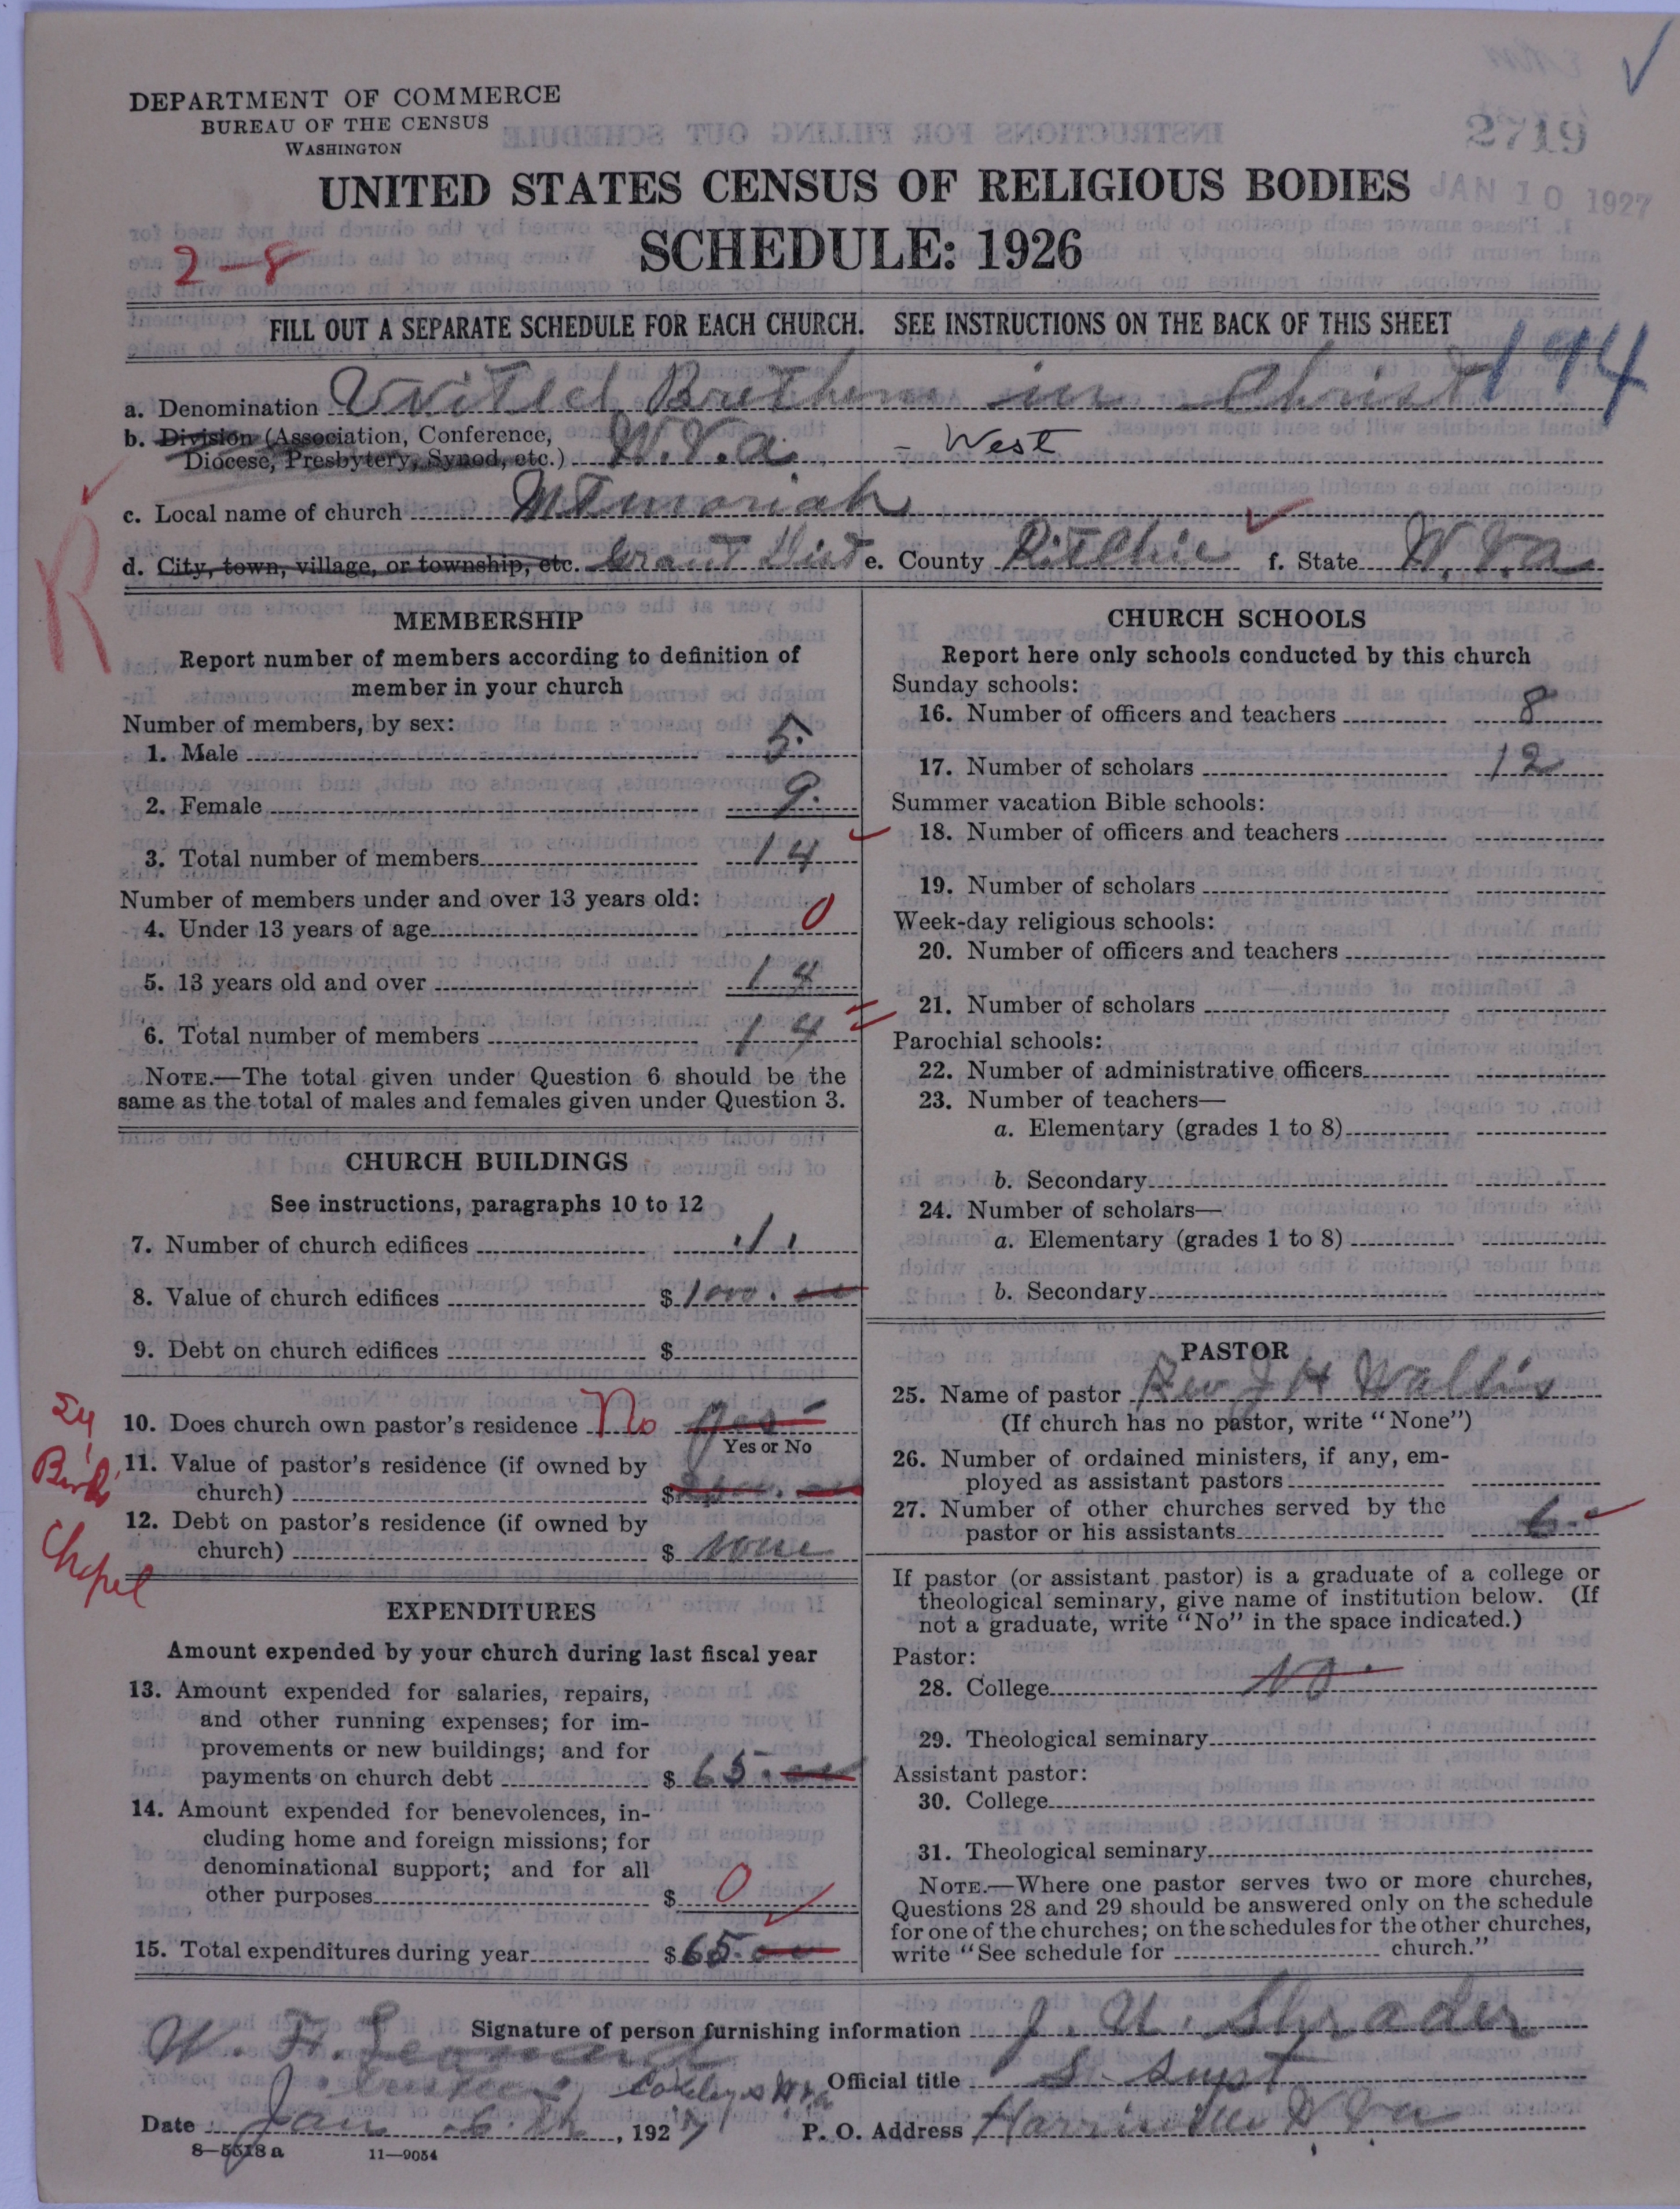 DEPARTMENT OF COMMERCE
BUREAU OF THE CENSUS
WASHINGTON
2719
JAN 10 1927
UNITED STATES CENSUS OF RELIGIOUS BODIES
SCHEDULE: 1926
2-8
FILL OUT A SEPARATE SCHEDULE FOR EACH CHURCH. SEE INSTRUCTIONS ON THE BACK OF THIS SHEET
194
a. Denomination United Brethern in Christ
b. Division (Association, Conference,
Diocese, Presbytery, Synod, etc.) W.Va. - West
c. Local name of church Mt moriah
d. City, town, village, or township, etc. Grant Dist e. County Ritchie f. State W.Va
R
MEMBERSHIP
Report number of members according to definition of
member in your church
Number of members, by sex:
1. Male 5.
2. Female 9.
3. Total number of members 14
Number of members under and over 13 years old:
4. Under 13 years of age 0
5. 13 years old and over 14
6. Total number of members 14
NOTE.—The total given under Question 6 should be the
same as the total of males and females given under Question 3.
CHURCH BUILDINGS
See instructions, paragraphs 10 to 12
7. Number of church edifices 1
8. Value of church edifices $1000.00
9. Debt on church edifices $
10. Does church own pastor's residence No yes
Yes or No
11. Value of pastor's residence (if owned by
church) $
12. Debt on pastor's residence (if owned by
church) $ none
Chapel
EXPENDITURES
Amount expended by your church during last fiscal year
13. Amount expended for salaries, repairs,
and other running expenses; for im-
provements or new buildings; and for
payments on church debt $ 65.00
14. Amount expended for benevolences, in-
cluding home and foreign missions; for
denominational support; and for all
other purposes $ 0
15. Total expenditures during year $65.00
CHURCH SCHOOLS
Report here only schools conducted by this church
Sunday schools:
16. Number of officers and teachers 8
17. Number of scholars 12
Summer vacation Bible schools:
18. Number of officers and teachers
19. Number of scholars
Week-day religious schools:
20. Number of officers and teachers
21. Number of scholars
Parochial schools:
22. Number of administrative officers
23. Number of teachers—
a. Elementary (grades 1 to 8)
b. Secondary
24. Number of scholars—
a. Elementary (grades 1 to 8)
b. Secondary
PASTOR
25. Name of pastor Rev J H Wallis
(If church has no pastor, write "None")
26. Number of ordained ministers, if any, em-
ployed as assistant pastors
27. Number of other churches served by the
pastor or his assistants 6
If pastor (or assistant pastor) is a graduate of a college or
theological seminary, give name of institution below. (If
not a graduate, write "No" in the space indicated.)
Pastor:
28. College No
29. Theological seminary
Assistant pastor:
30. College
31. Theological seminary
NOTE.—Where one pastor serves two or more churches,
Questions 28 and 29 should be answered only on the schedule
for one of the churches; on the schedules for the other churches,
write "See schedule for church."
W. H. Leonard
Signature of person furnishing information J. U. Shrader
Trustee,
Official title S. Supt
Date Jan 6th, 1927 P. O. Address Harrisville W Va
8—5518 a 11—9054